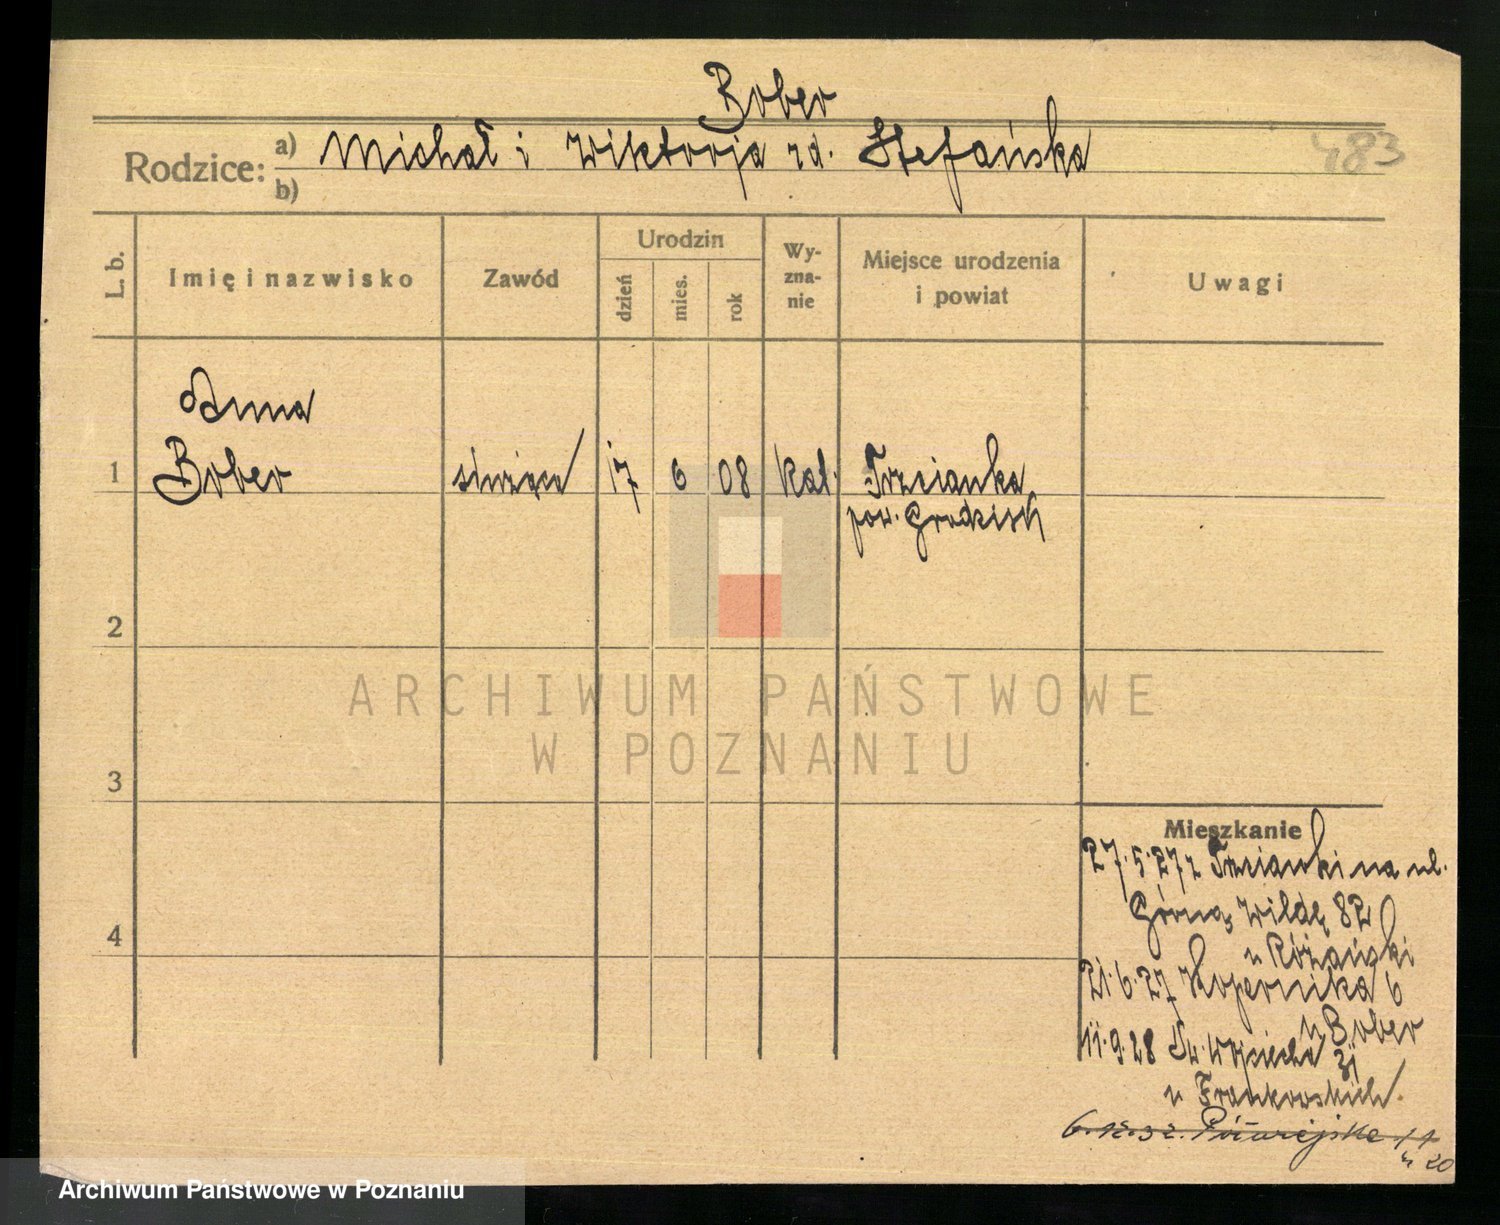 Bober
483
Rodzice: a) Michał i Wiktorja rd. Stefańska
b)
L. b.
Imię i nazwisko
Zawód
Urodzin
dzień
mies.
rok
Wy-
zna-
nie
Miejsce urodzenia
i powiat
Uwagi
Anna
1 Bober służąca 17 6 08 Kat. Trzcianka
pow. Grodzisk
2
3
4
ARCHIWUM PAŃSTWOWE
W POZNANIU
Mieszkanie
27.5.27 z Trzcianki na ul.
Górną Wildę 82
u Różański
21.6.27 Kopernika 6
u Bober
11.9.28 Św. Wojciecha
u Frankowskich.
6.12.32. 11
Archiwum Państwowe w Poznaniu